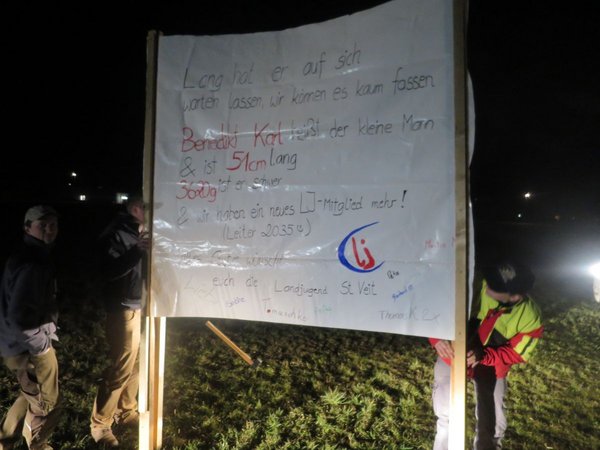 Lang hat er auf sich
warten lassen, wir können es kaum fassen
Benedikt Karl heißt der kleine Mann
& ist 51cm lang
3620g ist er schwer
& wir haben ein neues LJ-Mitglied mehr!
(Leiter 2035
Gute wünscht
euch die Landjugend St. Veit
Thomas K 2x